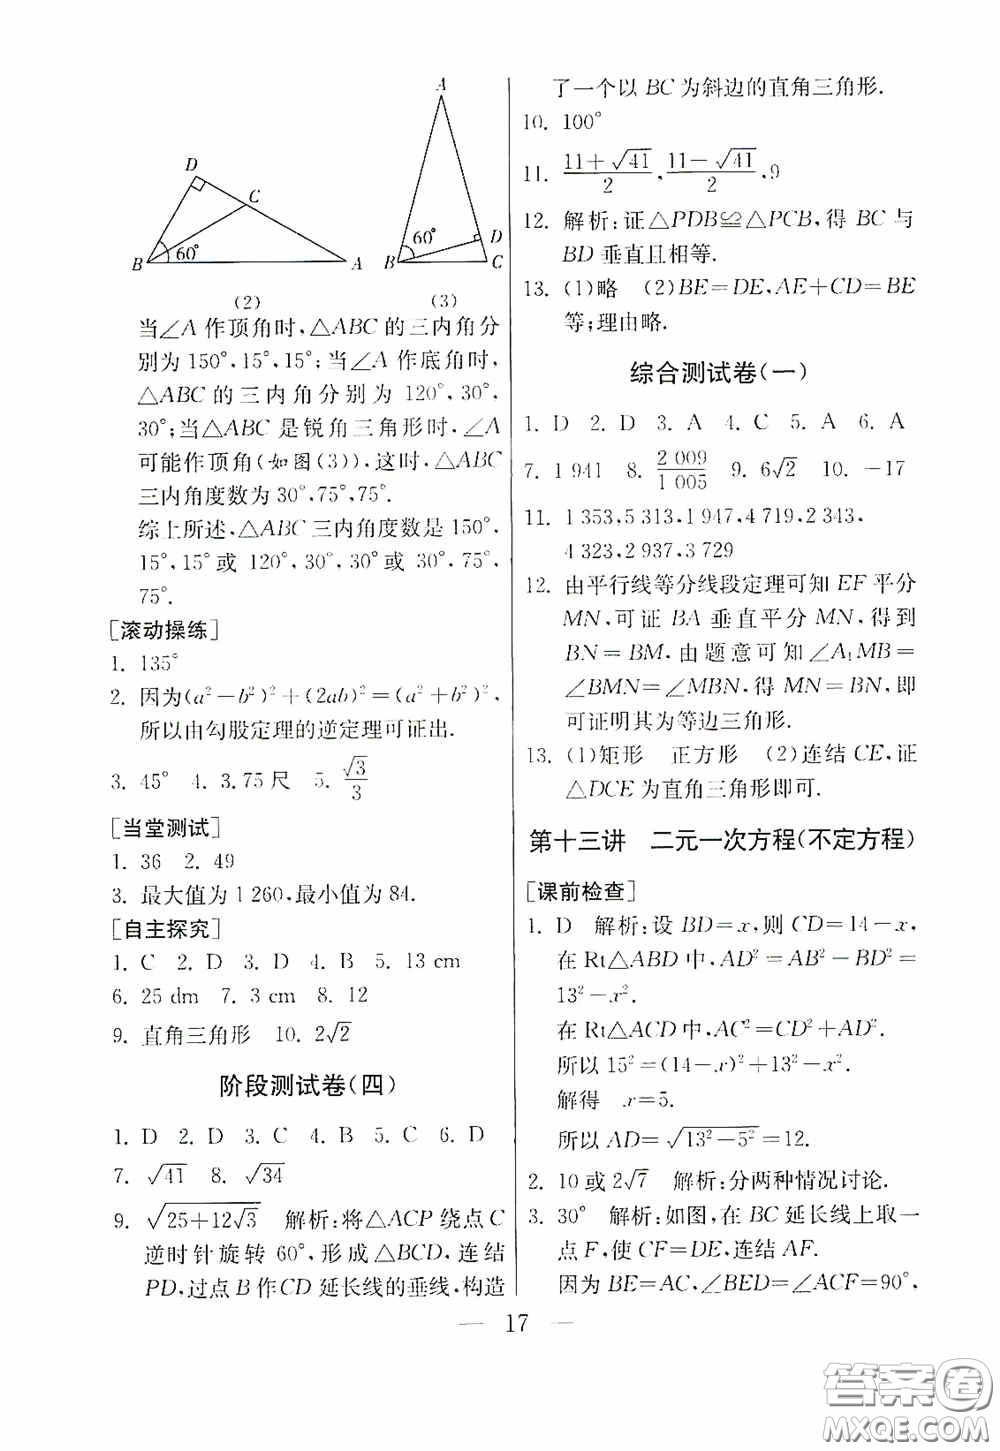 A
D
C
B
60°
A
60°
D
B
C
(2)
(3)
当∠A 作顶角时,△ABC 的三内角分
别为 150°,15°,15°;当∠A 作底角时,
△ABC 的三内角分别为 120°,30°,
30°;当△ABC 是锐角三角形时,∠A
可能作顶角(如图(3)),这时,△ABC
三内角度数为 30°,75°,75°.
综上所述,△ABC 三内角度数是 150°,
15°,15°或 120°,30°,30°或 30°,75°,
75°.
[滚动操练]
1. 135°
2. 因为(a²−b²)²+(2ab)²=(a²+b²)²,
所以由勾股定理的逆定理可证出.
3. 45° 4. 3.75 尺 5. √3/3
[当堂测试]
1. 36 2. 49
3. 最大值为 1 260,最小值为 84.
[自主探究]
1. C 2. D 3. D 4. B 5. 13 cm
6. 25 dm 7. 3 cm 8. 12
9. 直角三角形 10. 2√2
阶段测试卷(四)
1. D 2. D 3. C 4. B 5. C 6. D
7. √41 8. √34
9. √(25+12√3) 解析:将△ACP 绕点 C
逆时针旋转 60°,形成△BCD,连结
PD,过点 B 作 CD 延长线的垂线,构造
了一个以 BC 为斜边的直角三角形.
10. 100°
11. (11+√41)/2,(11−√41)/2,9
12. 解析:证△PDB≌△PCB,得 BC 与
BD 垂直且相等.
13. (1)略 (2)BE=DE,AE+CD=BE
等;理由略.
综合测试卷(一)
1. D 2. D 3. A 4. C 5. A 6. A
7. 1 941 8. 2 009/1 005 9. 6√2 10. −17
11. 1 353,5 313,1 947,4 719,2 343,
4 323,2 937,3 729
12. 由平行线等分线段定理可知 EF 平分
MN,可证 BA 垂直平分 MN,得到
BN=BM,由题意可知∠A₁MB=
∠BMN=∠MBN,得 MN=BN,即
可证明其为等边三角形.
13. (1)矩形 正方形 (2)连结 CE,证
△DCE 为直角三角形即可.
第十三讲 二元一次方程(不定方程)
[课前检查]
1. D 解析:设 BD=x,则 CD=14−x,
在 Rt△ABD 中,AD²=AB²−BD²=
13²−x².
在 Rt△ACD 中,AC²=CD²+AD².
所以 15²=(14−x)²+13²−x².
解得 x=5.
所以 AD=√(13²−5²)=12.
2. 10 或 2√7 解析:分两种情况讨论.
3. 30° 解析:如图,在 BC 延长线上取一
点 F,使 CF=DE,连结 AF.
因为 BE=AC,∠BED=∠ACF=90°,
— 17 —
答案圈
MXQE.COM